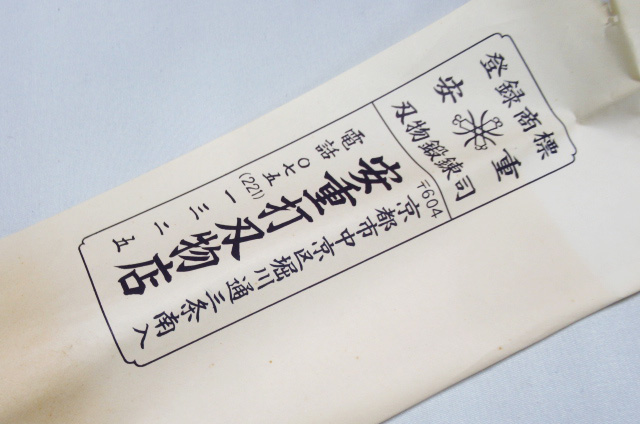 登録商標
安重
刃物鍛錬司
〒604
京都市中京区堀川通三条南入
安重打刃物店
電話〇七五(221)一三二五